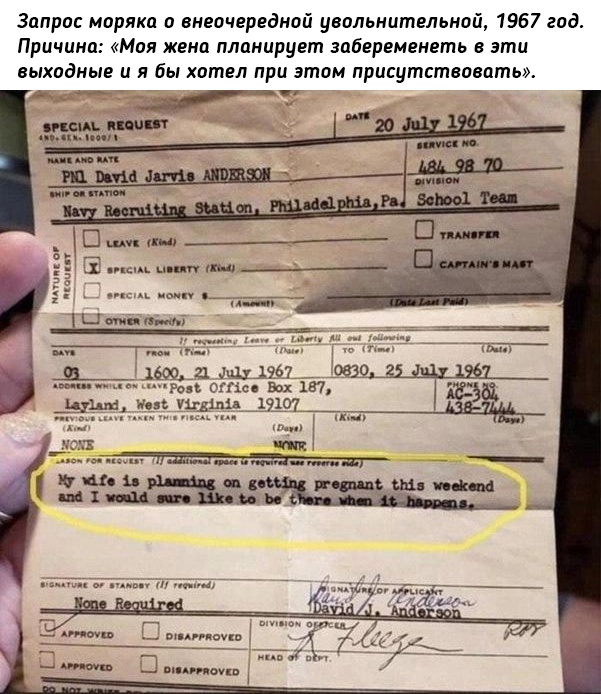 Запрос моряка о внеочередной увольнительной, 1967 год.
Причина: «Моя жена планирует забеременеть в эти
выходные и я бы хотел при этом присутствовать».
SPECIAL REQUEST
DATE
20 July 1967
NAME AND RATE
SERVICE NO.
PN1 David Jarvis ANDERSON
484 98 70
SHIP OR STATION
DIVISION
Navy Recruiting Station, Philadelphia, Pa.
School Team
NATURE OF
REQUEST
LEAVE (Kind)
TRANSFER
X SPECIAL LIBERTY (Kind)
CAPTAIN'S MAST
SPECIAL MONEY $
(Amount)
(Date Last Paid)
OTHER (Specify)
If requesting Leave or Liberty fill out following
DAYS
FROM (Time)
(Date)
TO (Time)
(Date)
03
1600, 21 July 1967
0830, 25 July 1967
ADDRESS WHILE ON LEAVE
Post Office Box 187,
PHONE NO.
AC-304
Layland, West Virginia 19107
438-7444
PREVIOUS LEAVE TAKEN THIS FISCAL YEAR
(Kind)
(Days)
(Kind)
(Days)
NONE
NONE
REASON FOR REQUEST (If additional space is required use reverse side)
My wife is planning on getting pregnant this weekend
and I would sure like to be there when it happens.
SIGNATURE OF STANDBY (If required)
SIGNATURE OF APPLICANT
David J. Anderson
None Required
David J. Anderson
APPROVED
DISAPPROVED
DIVISION OFFICER
APPROVED
DISAPPROVED
HEAD OF DEPT.
DO NOT